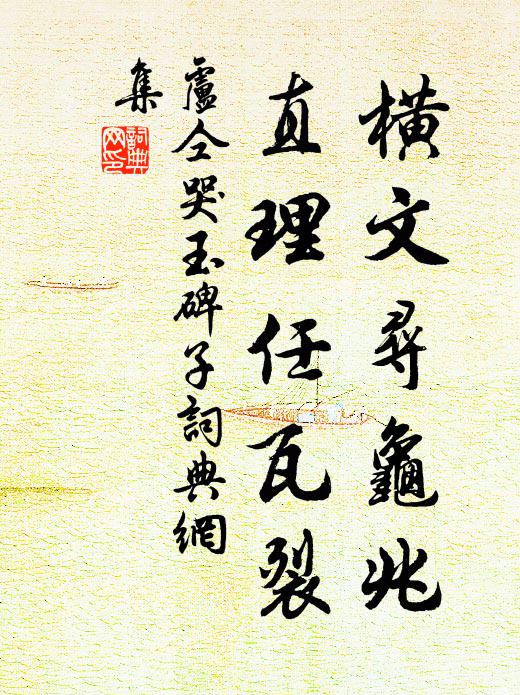 橫文尋龜兆
直理任瓦裂
盧仝哭玉碑子詞典網
集
詞典網印